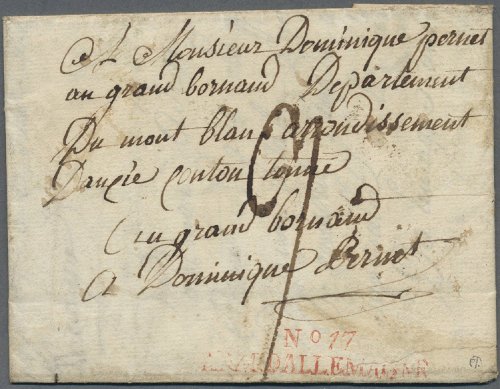 A Monsieur Dominique pernet
au grand bornand Departement
Du mont blanc arrondissement
Danecie conton tonne
au grand bornand
A Dominique Pernet
No 17
ARM. D'ALLEMAGNE